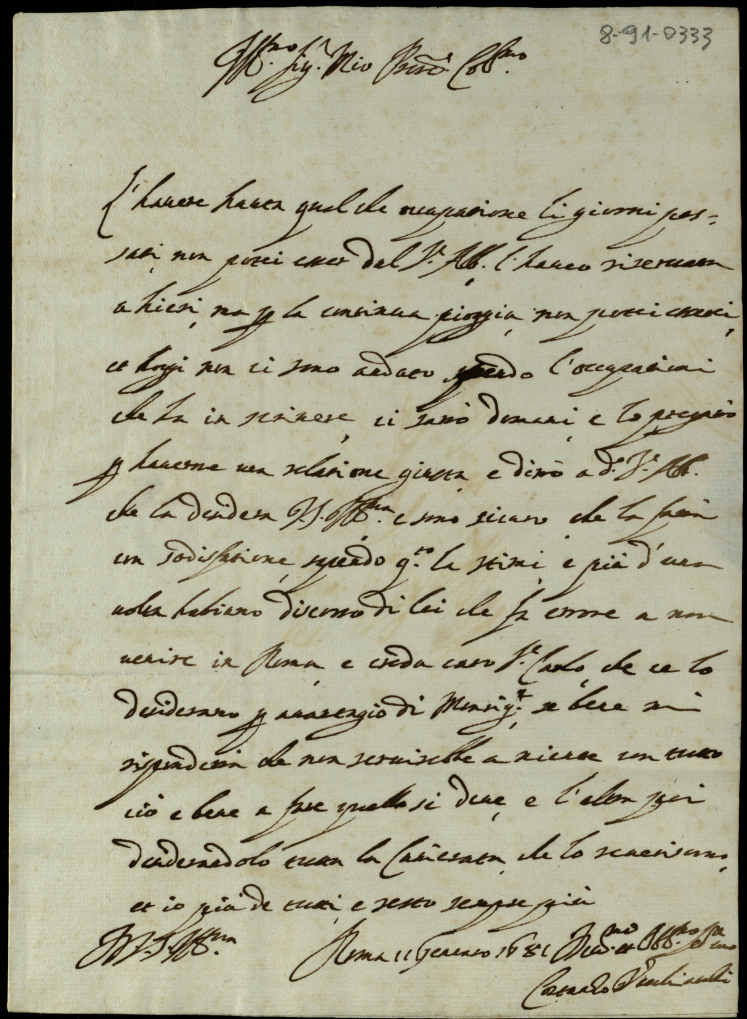 8-91-0333
Ill.mo Sig.r Mio Pron. Col.mo
L'havere hauta qualche occupatione li giorni pas=
sati non potei esser dal S.r Ab. l'haveo riservata
a hieri, ma p la continua pioggia, non potei esserci,
et hoggi non ci sono andato l'occupationi
che ha in scrivere, ci sarò domani, e lo pregarò
p haverne una relatione giusta e dirò a d.o S.r Ab.
che la desidera V.S. Ill.ma e sono sicuro che la farà
con sodisfatione, sapendo q.to la stimi, e più d'una
volta habiamo discorso di lei che fa errore a non
venire in Roma, e creda caro S.r Carlo, che ce lo
desiderano p avantagio di Monsig.r, se bene mi
risponderà che non servirebbe a niente con tutto
ciò e bene a fare quello si deve, e l'altra poi
desiderandolo tutta la Camerata, che lo reveriscono,
et io più de tutti e resto sempre più
Di V.S. Ill.ma
Roma 11 Genaro 1681 Dev.mo et Obl.mo Ser.